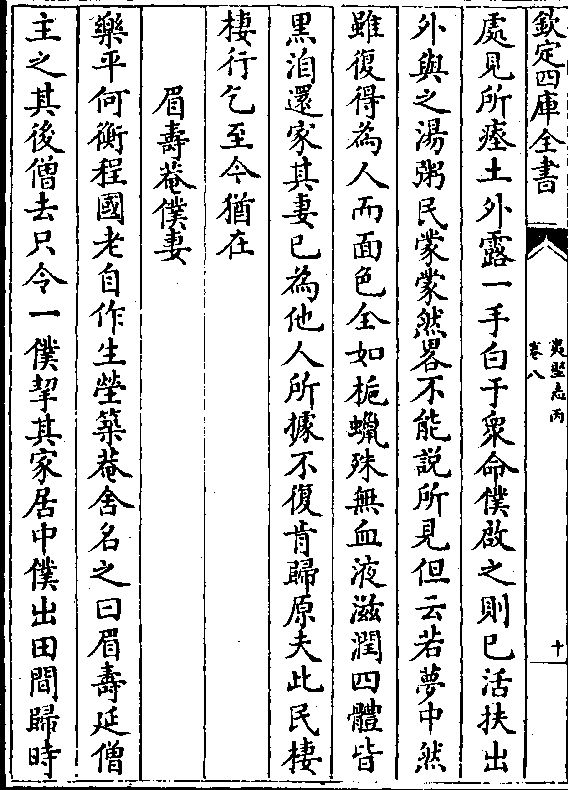 欽定四庫全書
夷堅志丙
卷八
十
處見所瘞土外露一手白于衆命僕啟之則已活扶出
外與之湯粥民蒙蒙然畧不能說所見但云若夢中然
雖復得為人而面色全如梔蠟殊無血液滋潤四體皆
黑洎還家其妻已為他人所據不復肯歸原夫此民棲
棲行乞至今猶在
眉壽菴僕妻
樂平何衡程國老自作生塋築菴舍名之曰眉壽延僧
主之其後僧去只令一僕挈其家居中僕出田間歸時